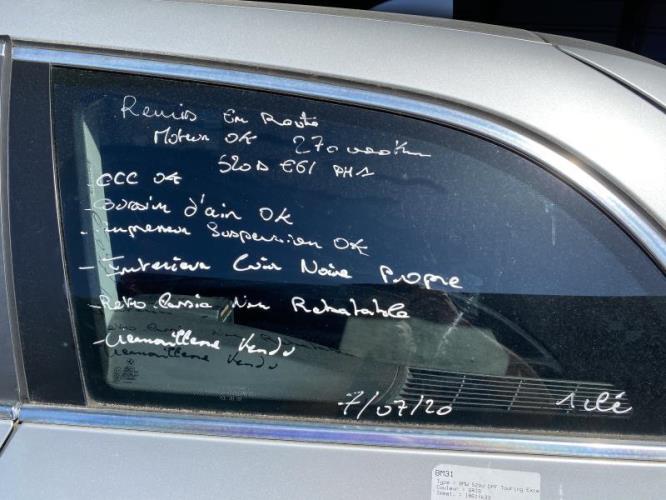 Remis En Route
Moteur OK 270000km
520D E61 PH1
- CCC OK
- Coussin d'air OK
- Compresseur Suspension OK
- Interieur Cuir Noire Propre
- Retro Rabatable
- Vendu
7/07/20 1 clé
BM31
Type : BMW 520d DPF Touring Exce
Couleur : GRIS